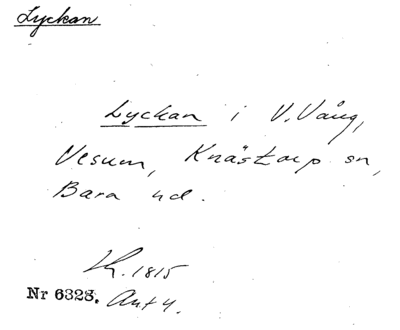 Lyckan
Lyckan i V. Vång,
Vesum, Knästorp sn,
Bara hd.
1815
Nr 6328.